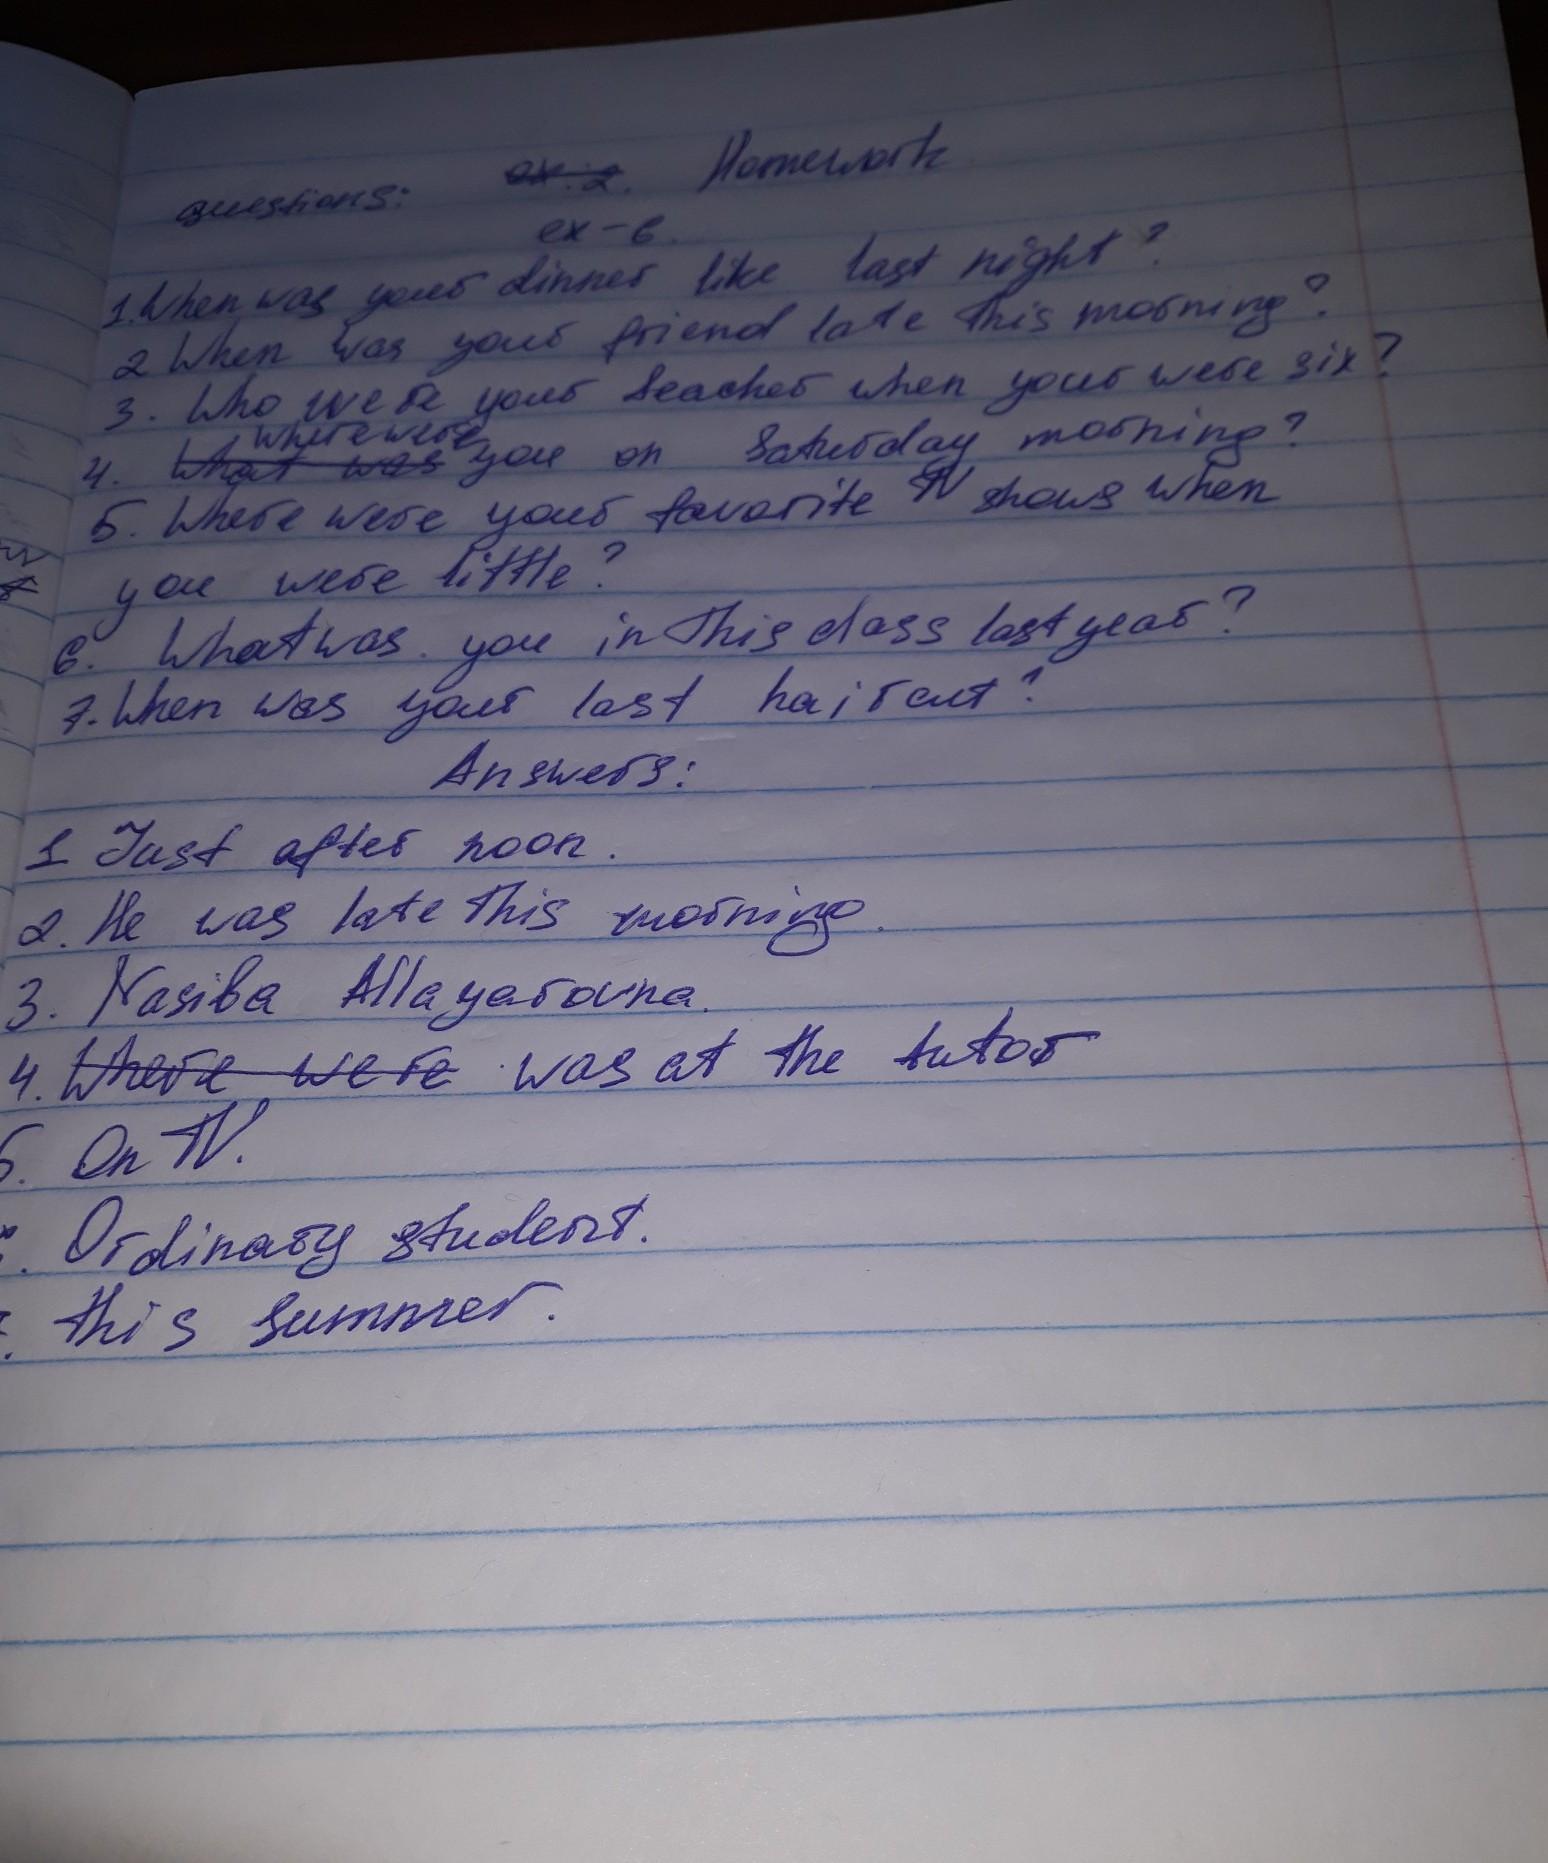 questions: ex. 2. Homework
ex-6.
1. When was your dinner like last night?
2 When was your friend late this morning?
3. Who were your teacher when your were six?
where were
4. What was you on Saturday morning?
5. Where were your favorite TV shows when
you were little?
6. What was you in this class last year?
7. When was your last haircut?
Answers:
1 Just after noon.
2. He was late this morning.
3. Nasiba Allayarovna.
4. Where were was at the tutor
5. On TV.
. Ordinary student.
. this summer.